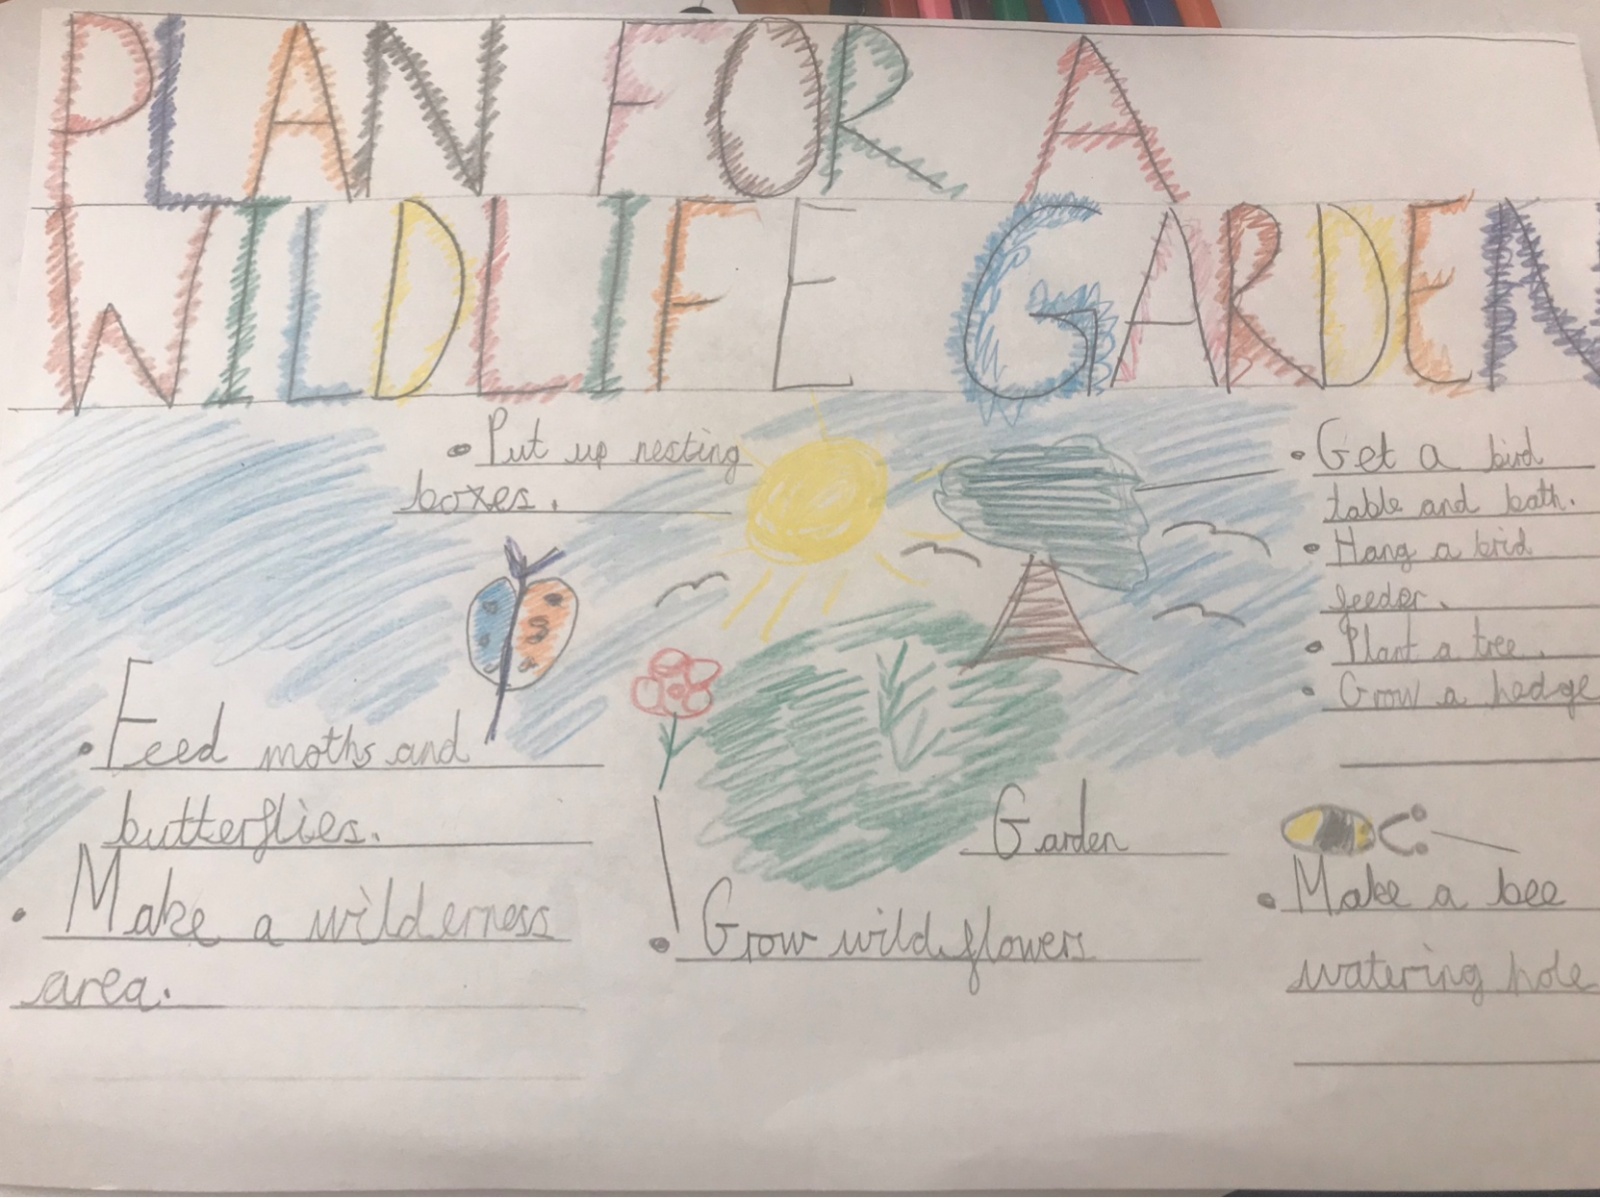 PLAN FOR A
WILDLIFE GARDEN
• Put up nesting
boxes.
• Get a bird
table and bath.
• Hang a brid
feeder.
• Plant a tree.
• Grow a hedge
• Feed moths and
butterflies.
• Make a wilderness
area.
Garden
• Grow wild flowers
• Make a bee
watering hole